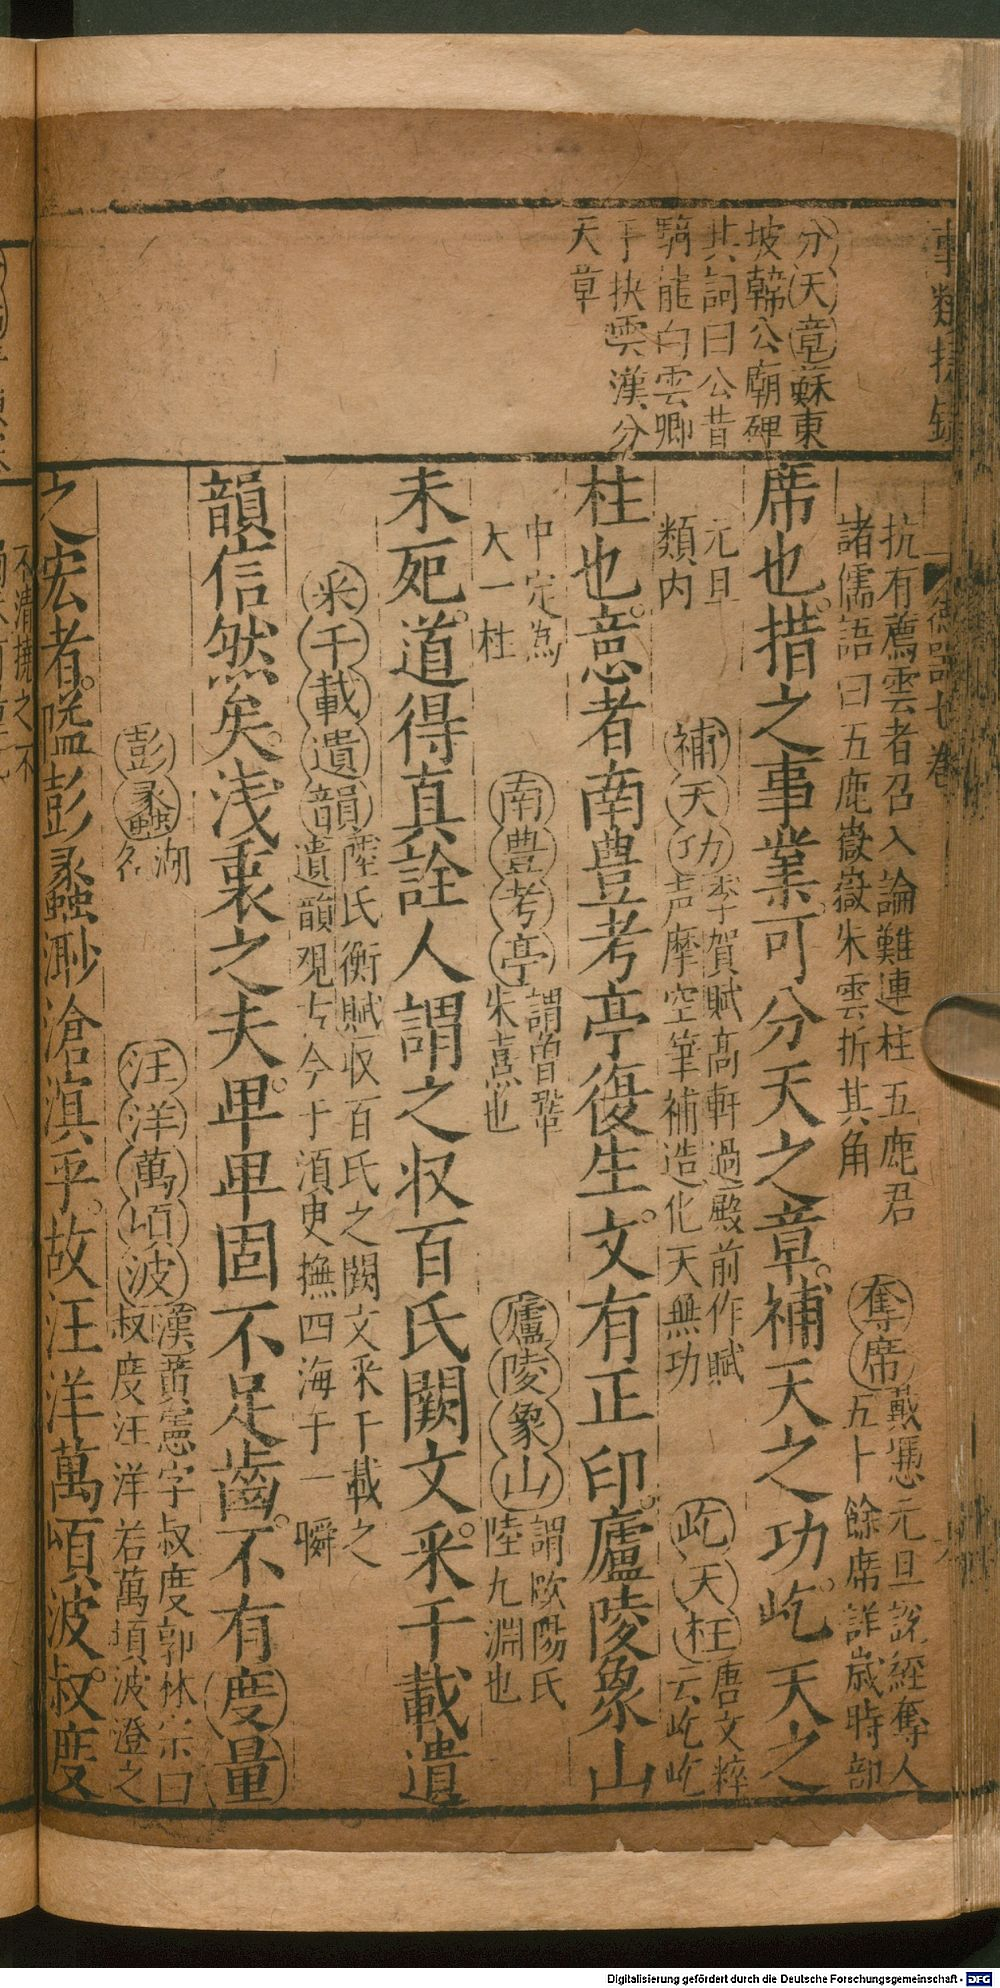 事類捷錄
德器七卷
分天章蘇東
坡韓公廟碑
其詞曰公昔
騎龍白雲鄉
手抉雲漢分
天章
抗有薦雲者召入論難連柱五鹿君
諸儒語曰五鹿嶽嶽朱雲折其角
奪席戴憑元旦說經奪人
五十餘席詳歲時部
席也措之事業可分天之章補天之功屹天之
元旦
類內
補天功李賀賦高軒過殿前作賦
声摩空筆補造化天無功
屹天柱唐文粹
云屹屹
柱也意者南豊考亭復生文有正印廬陵象山
中定為
大一柱
南豊考亭謂曾鞏
朱熹也
廬陵象山謂歐陽氏
陸九淵也
未死道得真詮人謂之収百氏闕文采千載遺
采千載遺韻陸氏衡賦収百氏之闕文采千載之
遺韻覌古今于湏㕰撫四海于一瞬
韻信然矣浅衷之夫卑卑固不足齒不有度量
彭蠡湖
名
汪洋萬頃波漢黄憲字叔度郭林宗曰
叔度汪洋若萬頃波澄之
之宏者隘彭蠡渺滄溟乎故汪洋萬頃波叔度
不清撓之不